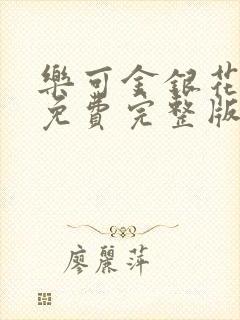 樂可金銀花
免費完整版
廖麗萍